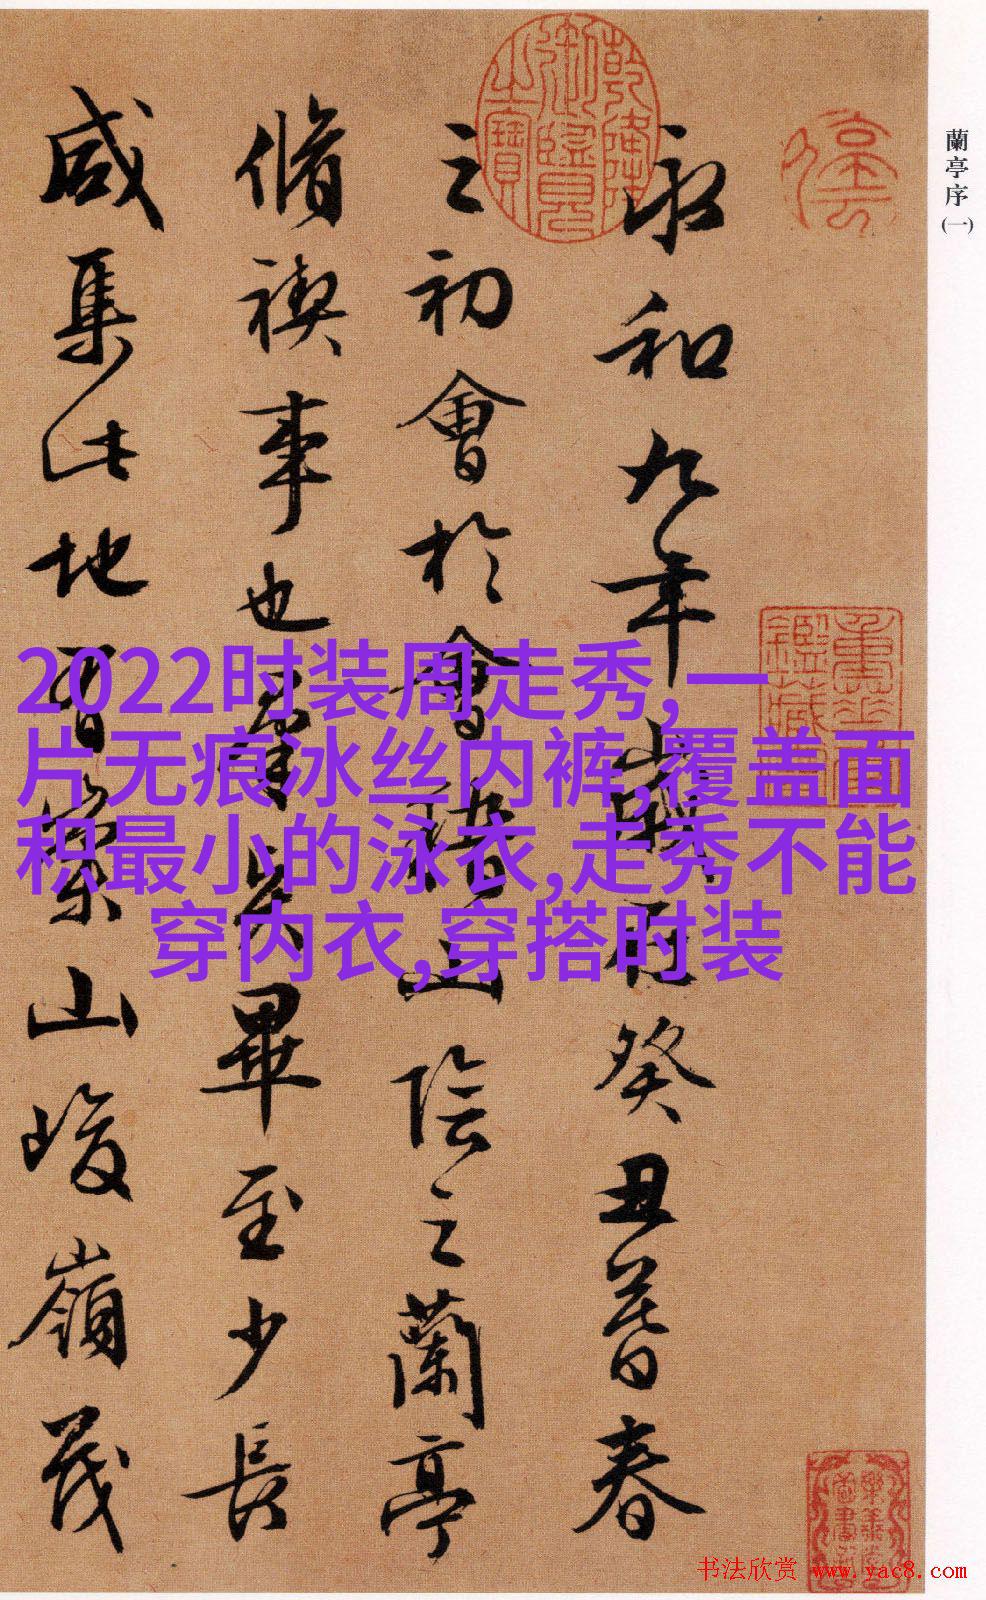 蘭亭序(一)
永和九年歲在癸丑暮春
之初會於會稽山陰之蘭亭
脩禊事也羣賢畢至少長
咸集此地有崇山峻嶺茂
乾隆御覽之寶
2022时装周走秀,一
片无痕冰丝内裤,覆盖面
积最小的泳衣,走秀不能
穿内衣,穿搭时装
书法欣赏 www.yac8.com